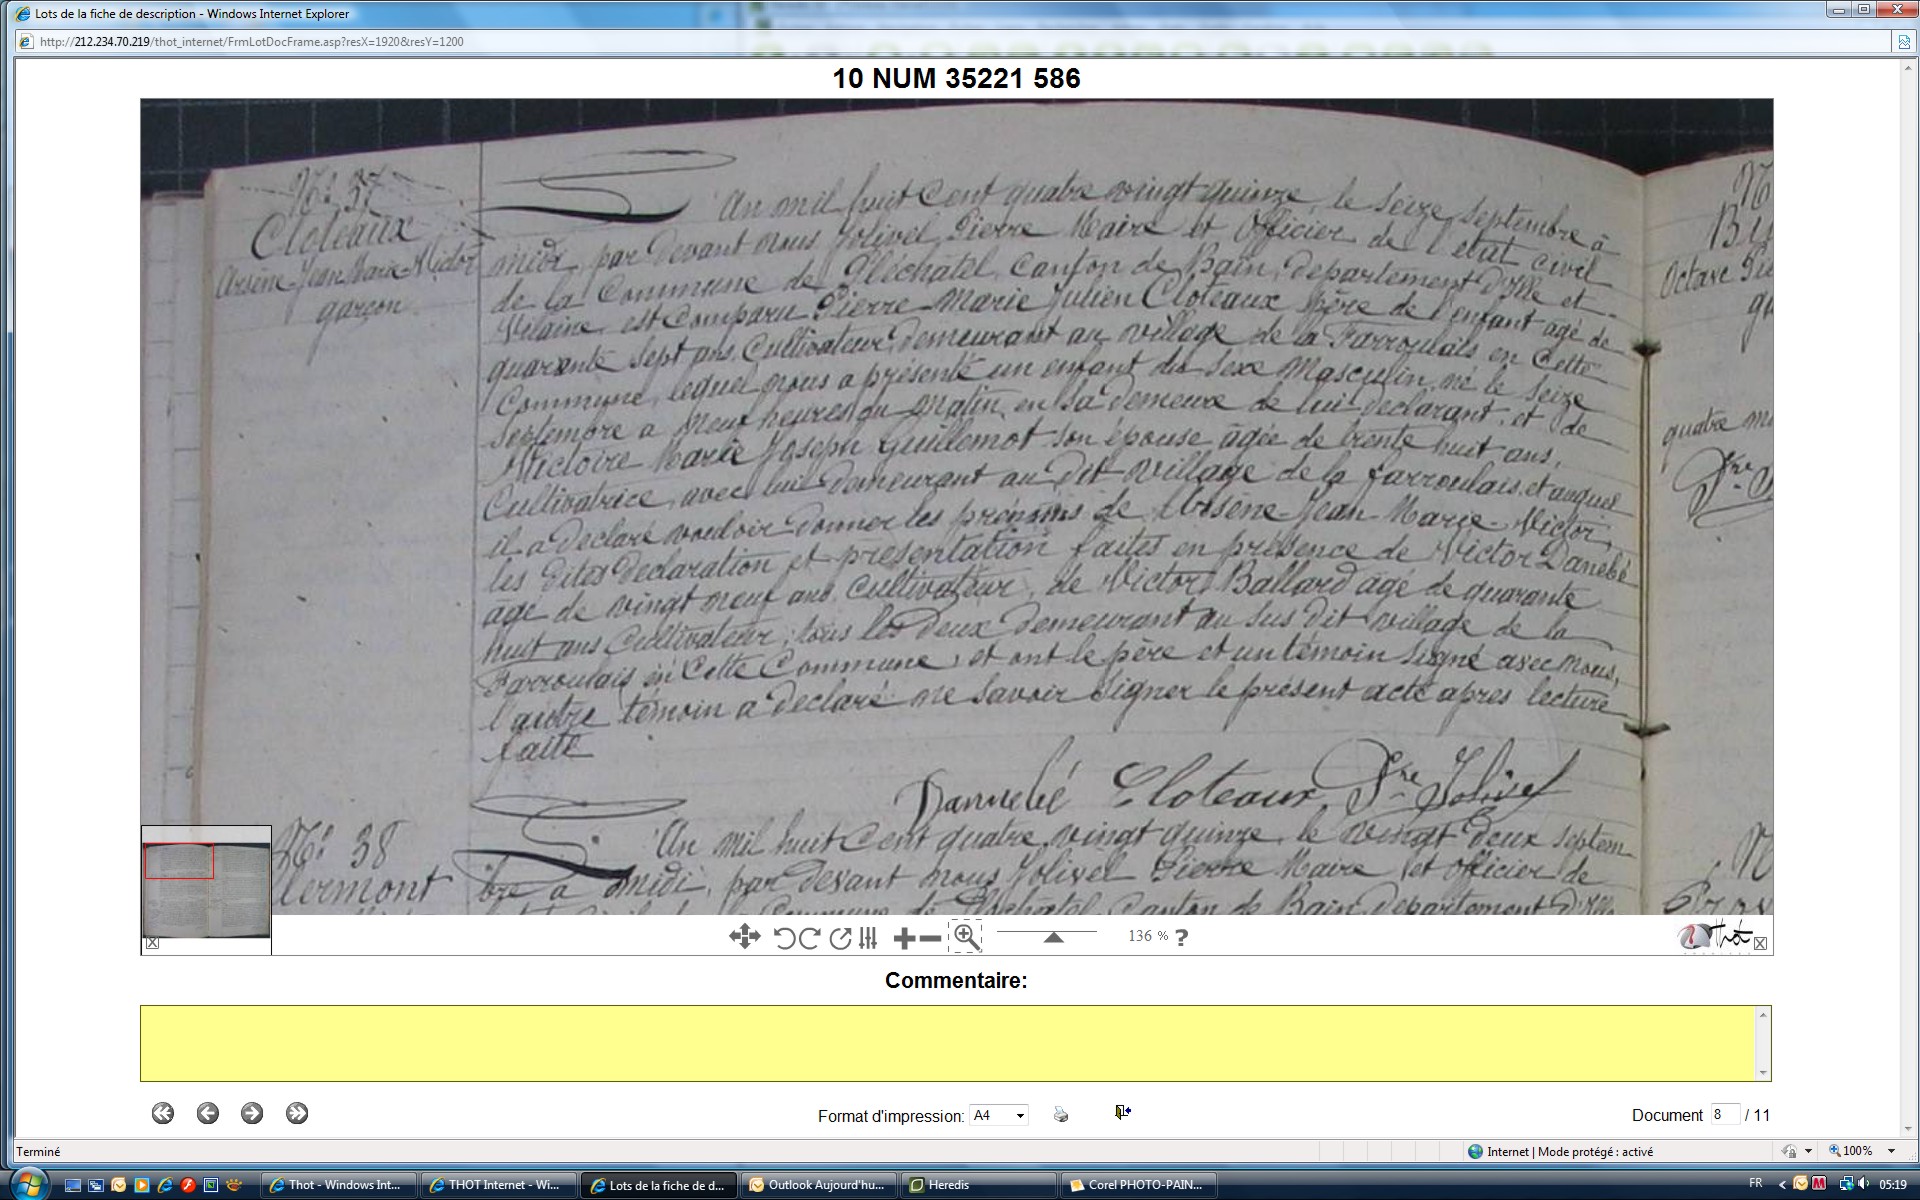 Lots de la fiche de description - Windows Internet Explorer
http://212.234.70.219/thot_internet/FrmLotDocFrame.asp?resX=1920&resY=1200
10 NUM 35221 586
N° 37
Cloteaux
Arsène Jean Marie Victor
garçon
An mil huit Cent quatre vingt quinze, le seize septembre à
midi, par devant nous Jolivel Pierre Maire et Officier de l'etat civil
de la Commune de Pléchâtel, Canton de Bain, departement d'Ille et
Vilaine, est Comparu Pierre Marie Julien Cloteaux père de l'enfant âgé de
quarante sept ans, Cultivateur, demeurant au village de la Farroulais en Cette
Commune, lequel nous a présenté un enfant du sexe Masculin né le seize
septembre a neuf heures du matin, en sa demeure de lui declarant, et de
Victoire Marie Joseph Guillemot son épouse âgée de trente huit ans,
Cultivatrice, avec lui demeurant au dit village de la farroulais, et auquel
il a declaré vouloir donner les prénoms de Arsène Jean Marie Victor,
les dites declaration et présentation faites en présence de Victor Danebé
âgé de vingt neuf ans, Cultivateur, de Victor Ballard âgé de quarante
huit ans Cultivateur, tous les deux demeurant au sus dit village de la
Farroulais en Cette Commune, et ont le père et un témoin signé avec nous,
l'autre témoin a declaré ne savoir signer le présent acte après lecture
faite
Dannebé Cloteaux Pre Jolivel
N° 38
Clermont
An mil huit Cent quatre vingt quinze, le vingt deux septem
bre à midi, par devant nous Jolivel Pierre Maire et officier de
Commune de Pléchâtel, Canton de Bain, departement d'Ille
Octave
quatre
136 % ?
Thot
Commentaire:
Format d'impression: A4
Document 8 / 11
Terminé
Internet | Mode protégé : activé
100%
Thot - Windows Int...
THOT Internet - Wi...
Lots de la fiche de d...
Outlook Aujourd'hu...
Heredis
Corel PHOTO-PAIN...
FR
05:19